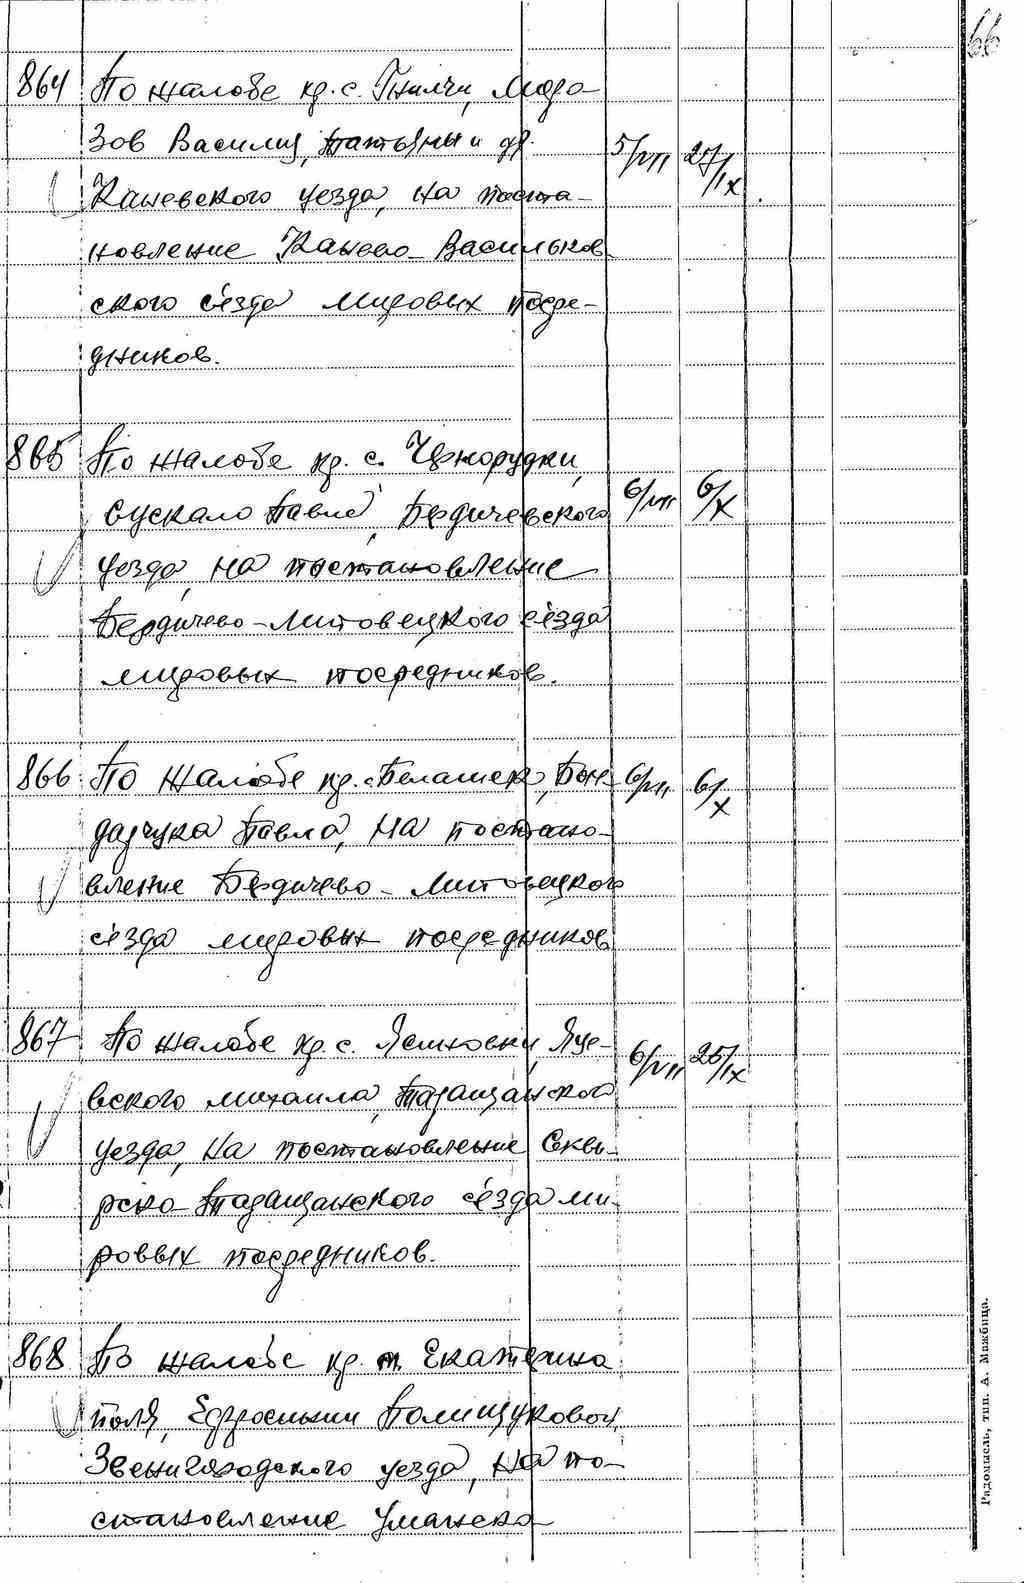 66
864 По жалобе кр. с. Гнилчи, Моро-
зов Василия, Татьяны и др.
Каневского уезда, на поста- 5/VII 27/IX
новление Канево-Васильков-
ского съезда мировых посре-
дников.
865 По жалобе кр. с. Чернорудки,
Сускало Павла, Бердичевского 6/VII 6/X
уезда, на постановление
Бердичево-Липовецкого съезда
мировых посредников.
866 По жалобе кр. с. Белашек, Бон- 6/VII 6/X
дарчука Павла, на постано-
вление Бердичево-Липовецкого
съезда мировых посредников
867 По жалобе кр. с. Ясиновки, Яце- 6/VII 25/IX
вского Михаила, Таращанского
уезда, на постановление Скви-
рско-Таращанского съезда ми-
ровых посредников.
868 По жалобе кр. м. Екатерино-
поля, Евфросинии Полищуковой,
Звенигородского уезда, на по-
становление Уманско-
Радомысль, тип. А. Мижбица.